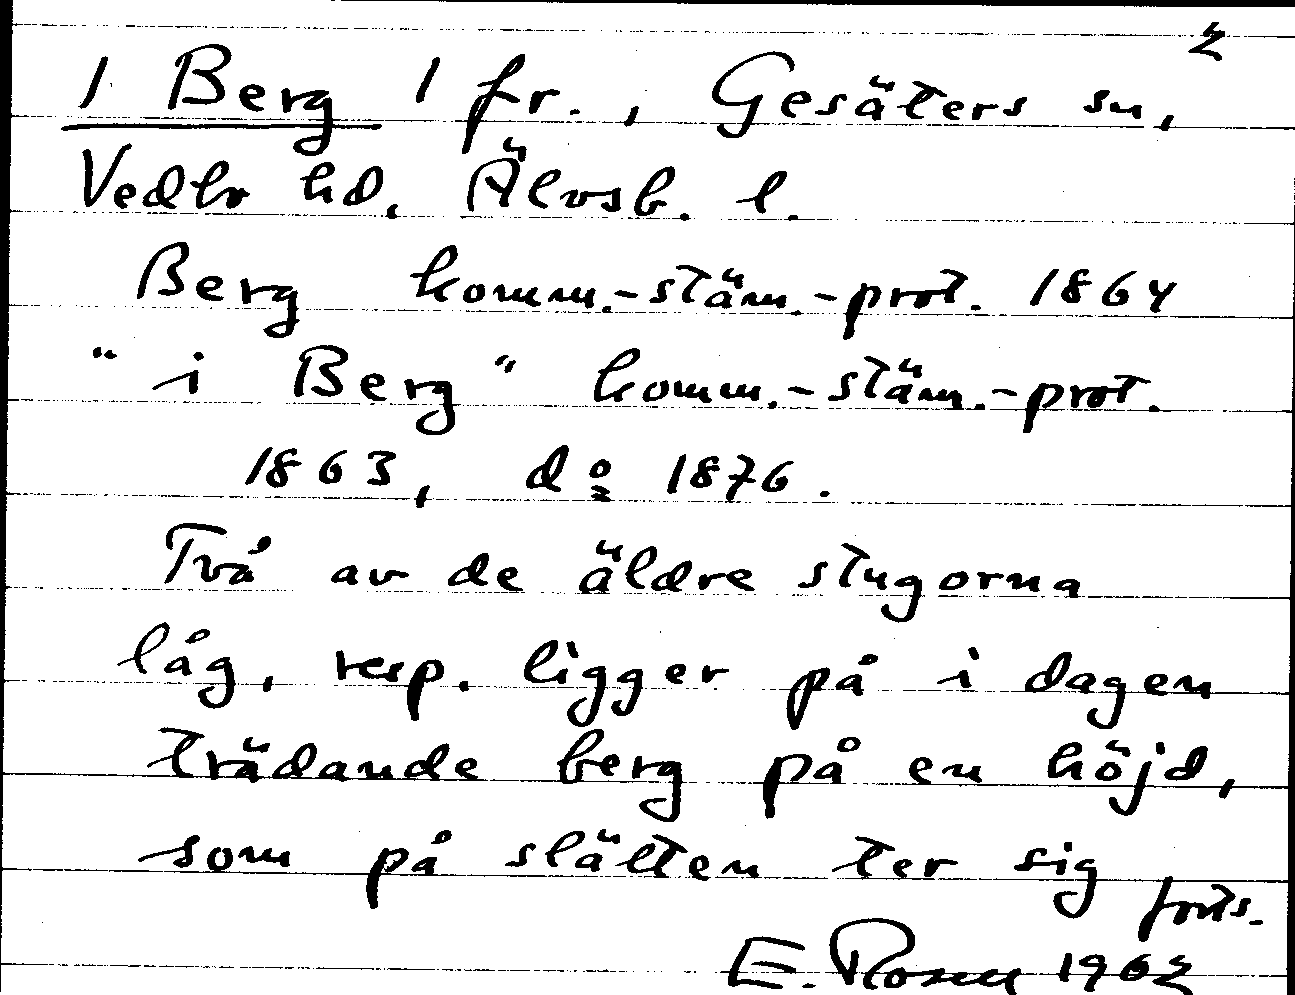 2
1 Berg 1 fr., Gesäters sn,
Vedbo hd. Älvsb. l.
Berg komm.-stäm.-prot. 1864
"i Berg" komm.-stäm.-prot.
1863, do 1876.
Två av de äldre stugorna
låg, resp. ligger på i dagen
trädande berg på en höjd,
som på slätten ter sig
forts.
E. Rosen 1962